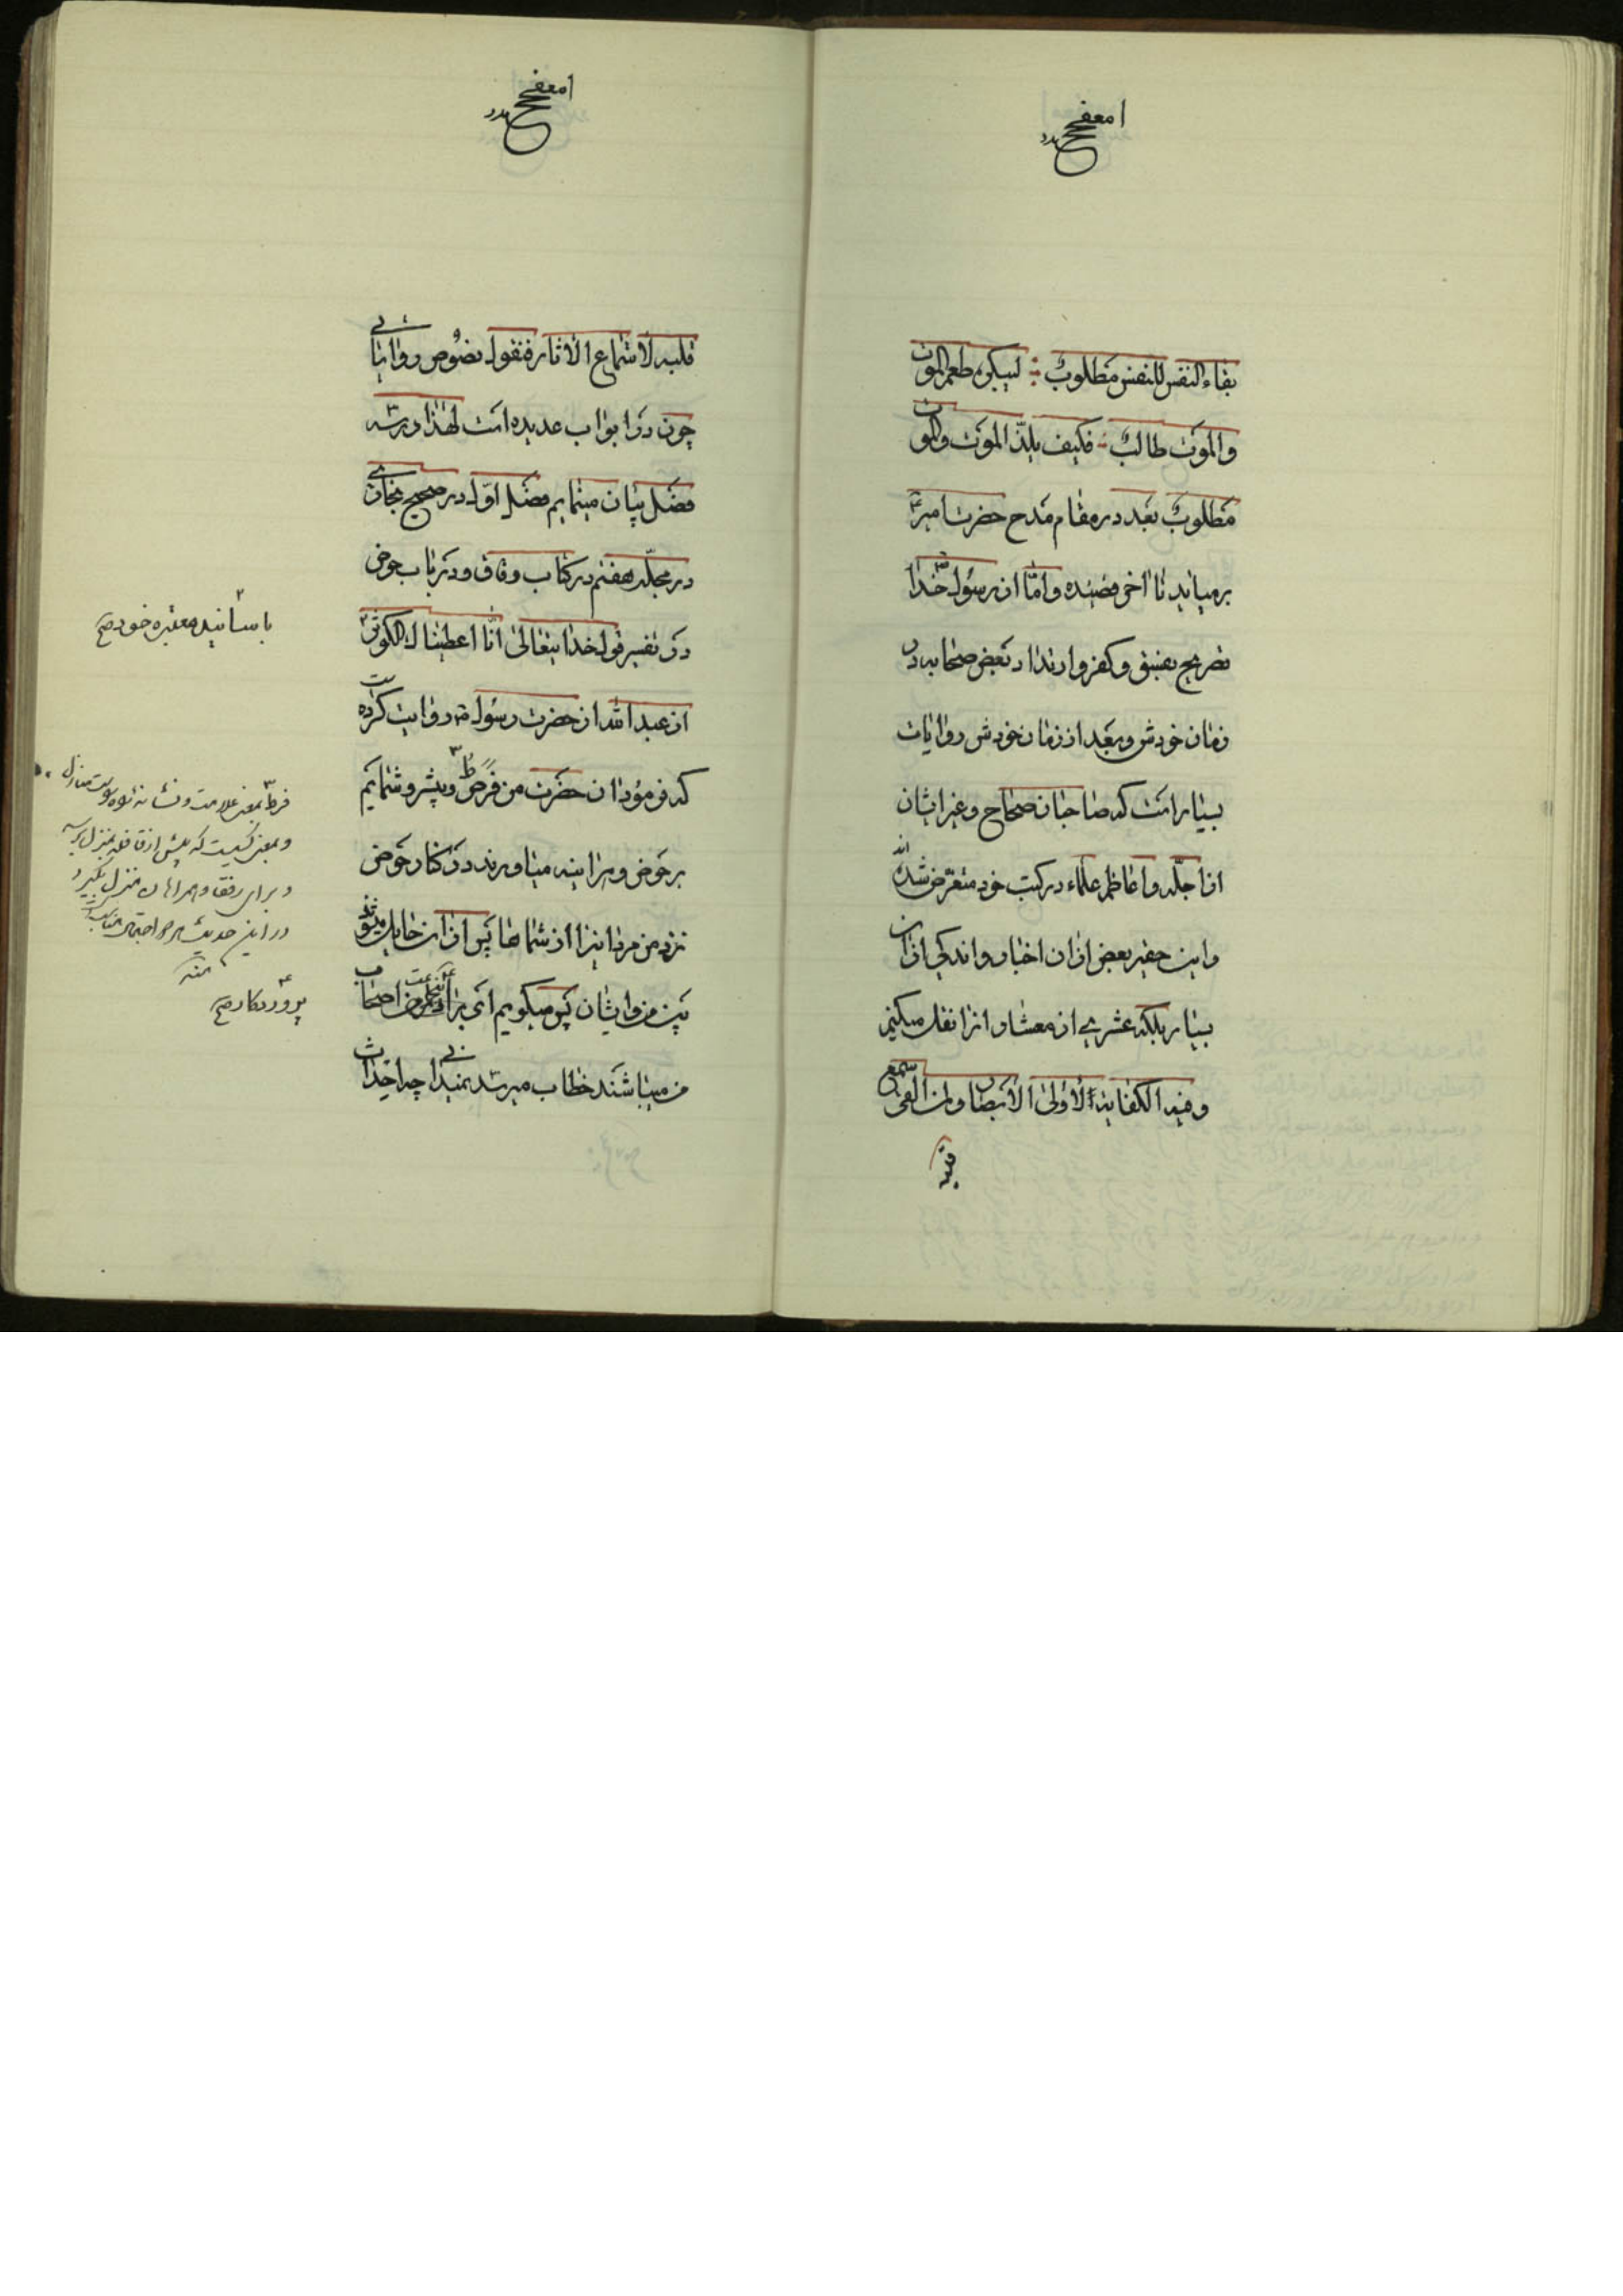 بقاء النفس للنفس مطلوب لیکن طعم الموت
والموت طالب فکیف یلذ الموت والموت
مطلوب بعد در مقام مدح حضرت امیر
برمیاید تا اخر قصیده و امّا از رسول خدا
تصریح بفسق و کفر و ارتداد بعض صحابه در
زمان خودش و بعد از زمان خودش روایات
بسیار است که صاحبان صحاح و غیر ایشان
از اجلّه و اعاظم علماء در کتب خود متعرض شده‌اند
و این حقیر بعض از ان اخبار و اندکی از ان
بسیار بلکه عشری از معشار انرا نقل میکنم
و فیه الکفایة لاولی الابصار و لمن القی السمع
قلبه
قلبه لاستماع الاثار فنقول نصوص روایتی
چون در ابواب عدیده است لهذا در سه
فصل بیان مینمایم فصل اول در صحیح بخاری
در مجلّد هفتم در کتاب رقاق و در باب حوض
در تفسیر قول خدایتعالی انّا اعطیناک الکوثر
از عبد الله از حضرت رسول روایت کرده است
که فرمود ان حضرت من فرط و پیشرو شمایم
بر حوض و هراینه میاورند در کنار حوض
نزد من مردانیرا از شماها پس از ان حایل میشوند
بین من و ایشان پس میگویم ای پروردگار من اصحاب
من میباشند خطاب میرسد نمیدانی چه احداث
با سانید معتبره خود صح
فرط بمعنی علامت و نشانه
و بمعنی کسیست که پیش از قافله بمنزل برسد
و برای رفقا و همراهان منزل بگیرد
در این حدیث هر دو احتمال
منه
پروردگار صح